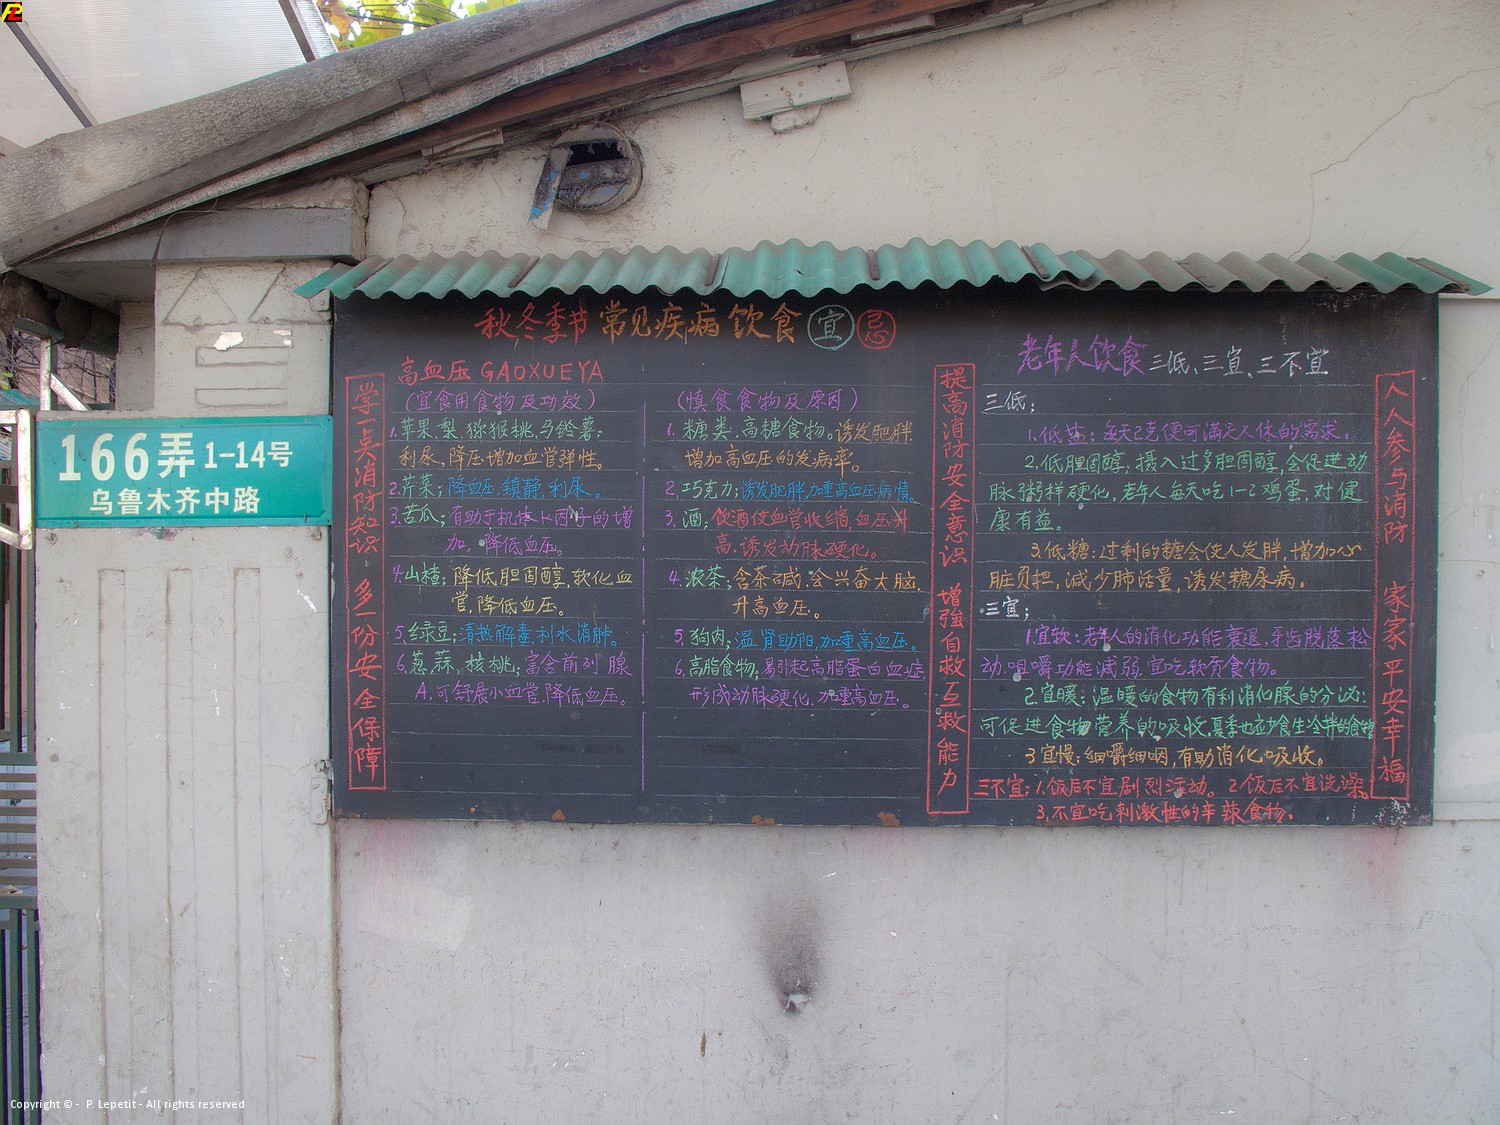 166弄 1-14号
乌鲁木齐中路
秋冬季节常见疾病饮食宜忌
学一点消防知识 多一份安全保障
高血压 GAOXUEYA
(宜食用食物及功效)
1.苹果.梨.猕猴桃.马铃薯:
利尿,降压增加血管弹性。
2.芹菜;降血压.镇静,利尿。
3.苦瓜;有助于机体K因子的增
加,降低血压。
4.山楂;降低.胆固醇,软化血
管,降低血压。
5.绿豆;清热解毒利水消肿。
6.葱,蒜,核桃;富含前列腺
A.可舒展小血管.降低血压。
(慎食食物及原因)
1.糖类.高糖食物。诱发肥胖
增加高血压的发病率。
2.巧克力;诱发肥胖,加重高血压病情。
3.酒;饮酒使血管收缩,血压升
高.诱发动脉硬化。
4.浓茶;含茶碱.会兴奋大脑,
升高血压。
5.狗肉;温肾助阳,加重高血压。
6.高脂食物;易引起高脂蛋白血症
形成动脉硬化.加重高血压。
提高消防安全意识 增强自救互救能力
老年人饮食三低、三宜、三不宜
三低;
1.低盐;每天2克便可满足人体的需求。
2.低胆固醇;摄入过多胆固醇,会促进动
脉粥样硬化,老年人每天吃1-2鸡蛋,对健
康有益。
3.低糖:过剩的糖会使人发胖,增加心
脏负担,减少肺活量,诱发糖尿病。
三宜;
1.宜软:老年人的消化功能衰退,牙齿脱落松
动.咀嚼功能减弱.宜吃软质食物。
2.宜暖:温暖的食物有利消化腺的分泌:
可促进食物营养的吸收.夏季也应少食生冷拌的食物
3宜慢;细嚼细咽,有助消化吸收。
三不宜;1.饭后不宜剧烈活动。2饭后不宜洗澡。
3.不宜吃刺激性的辛辣食物。
人人参与消防 家家平安幸福
Copyright © - P. Lepetit - All rights reserved